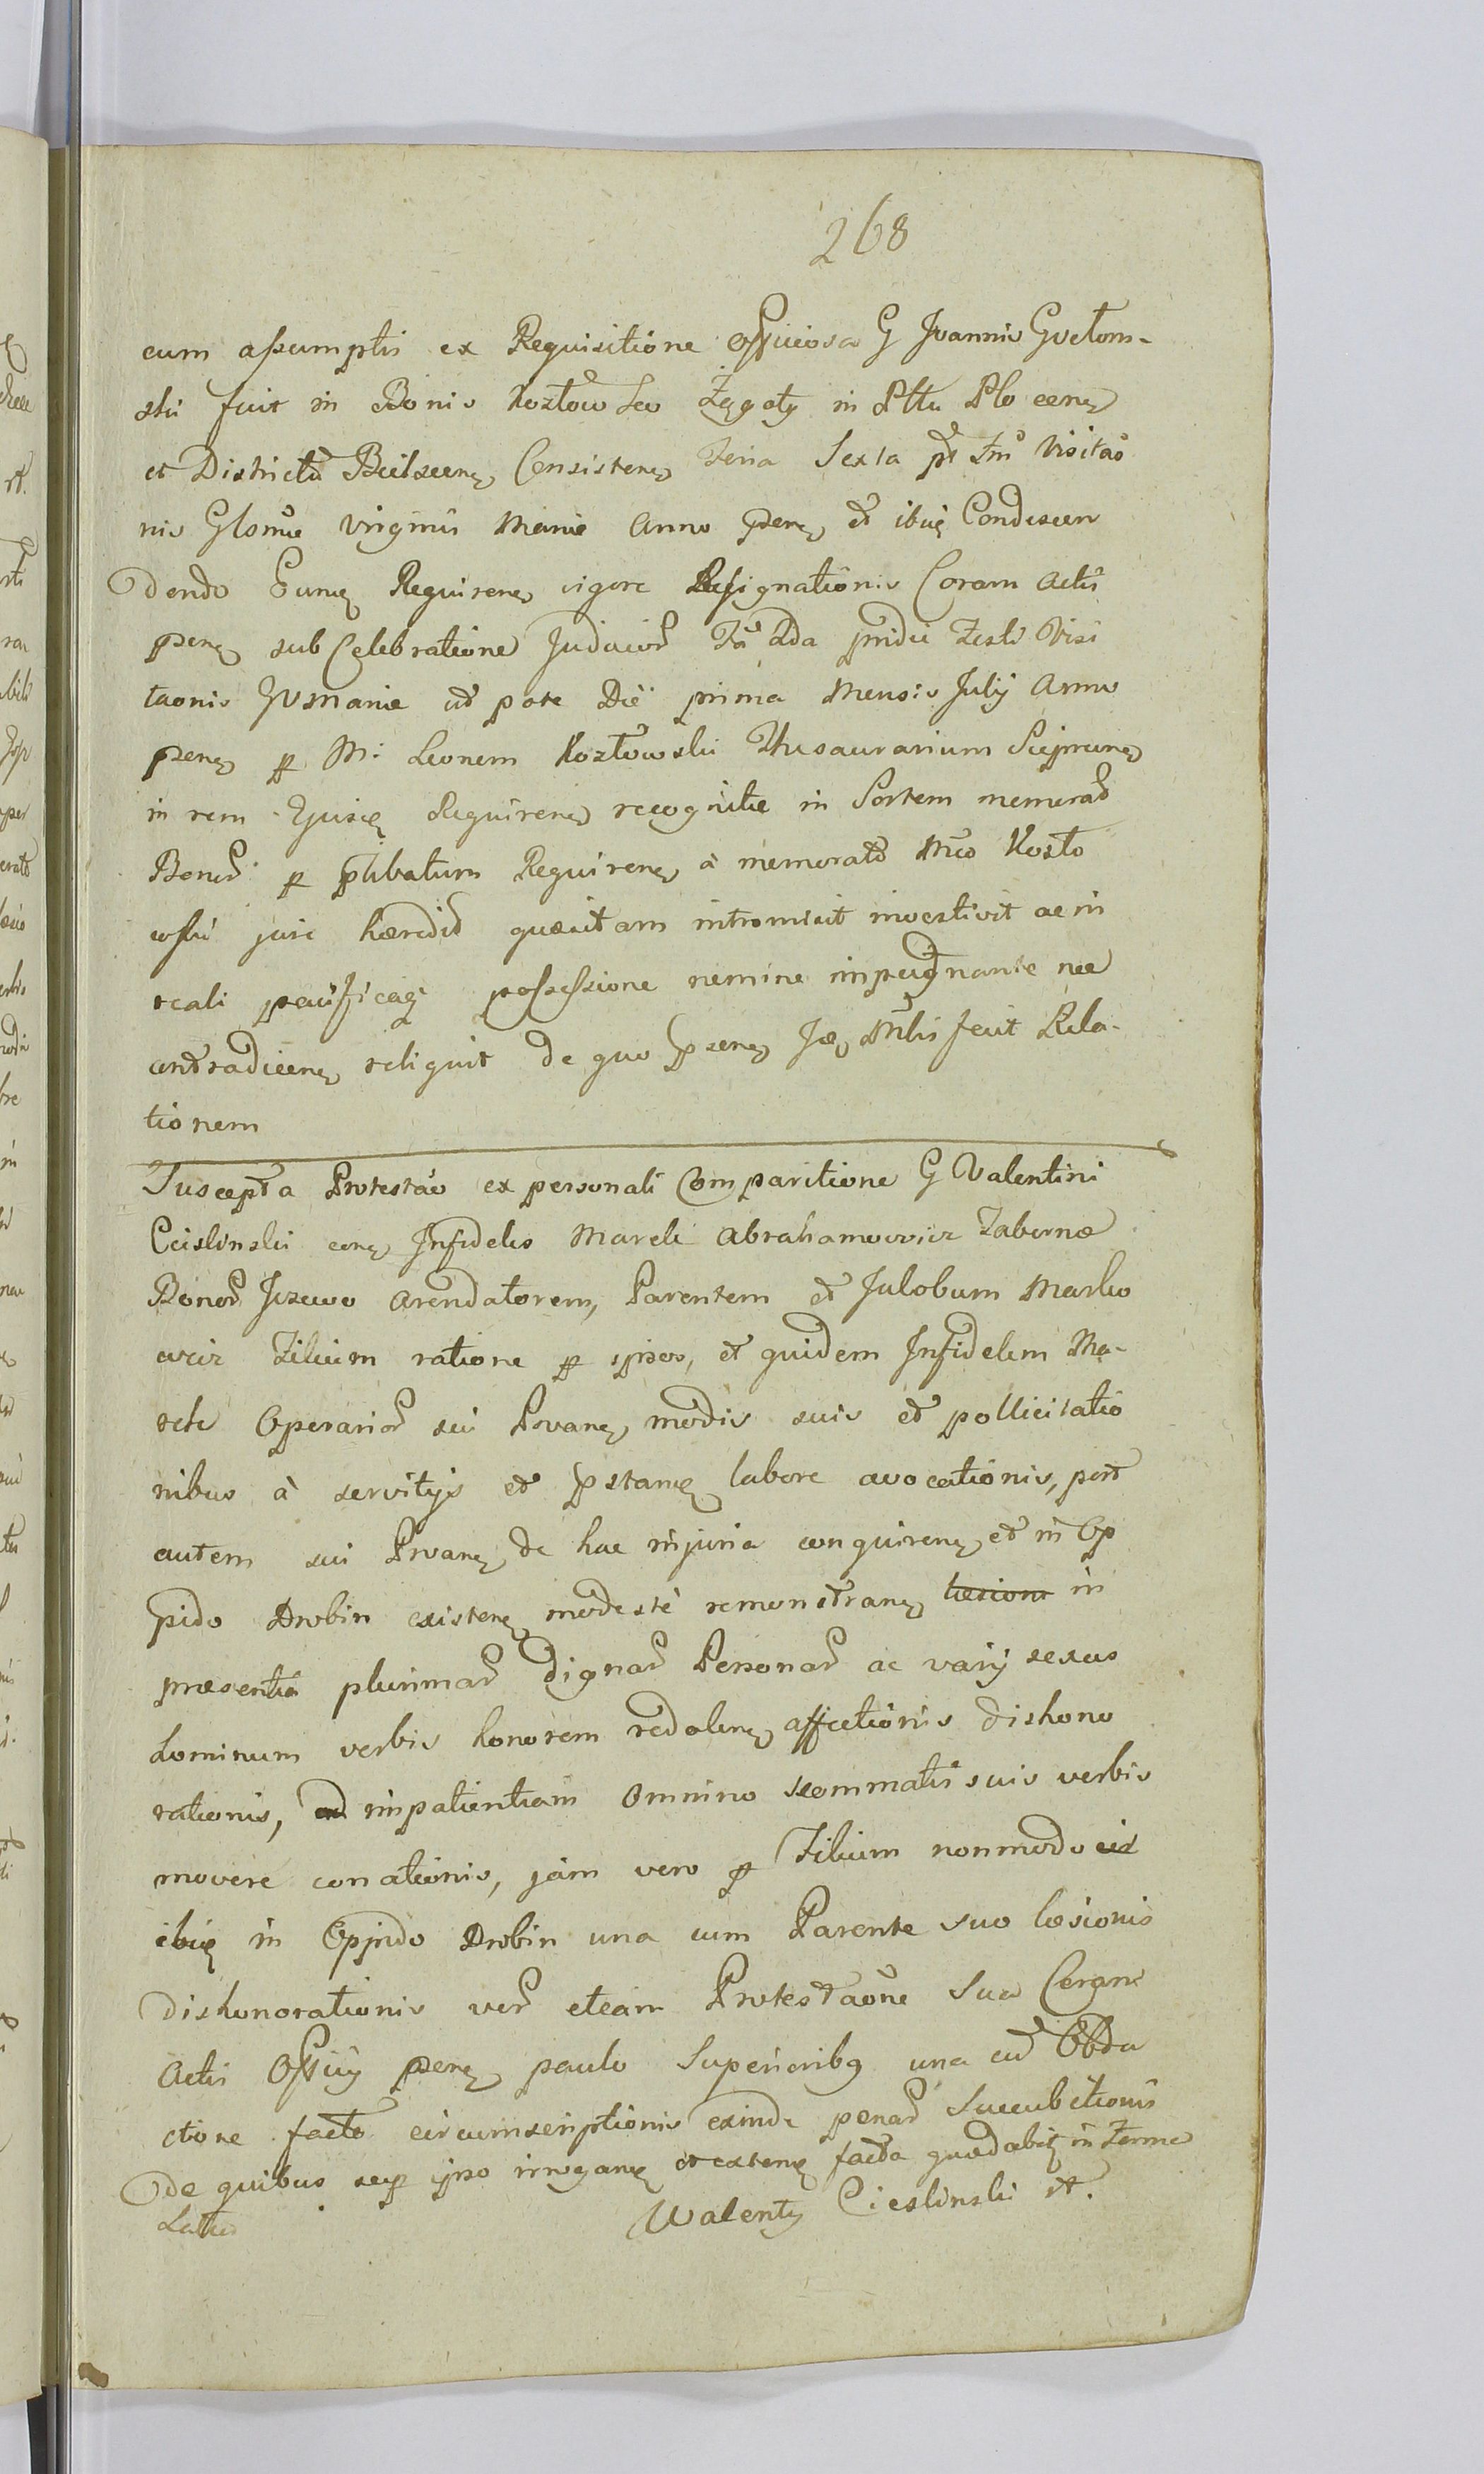 268
cum assumptis ex Requisitione officiosa G Joannis Gostom-
ski fuit in Bonis Kozłowo seu Zęgoty in Pttu Plocen
et Districtu Bielscen Consisten Feria Sexta pt Fm Visitao
nis Glosae Virginis Mariae Anno pren et ibiq Condescen
dendo Eunq Requiren vigore Resignationis Coram Actis
pren sub Celebratione Judicior Fa 2da pridie Festi Visi
taonis BVMariae ut pote Die prima Mensis July Anno
pren p M: Leonem Kozłowski Thesaurarium Sieprcen
in rem Ejusq Requiren recognitae in Sortem memorat
Bonor p plibatum Requiren à memorato Mco Kozło
wski jure haeredit quaesitam intromisit investivit ac in
reali pacificaq possessione nemine impugnante nec
contradicen reliquit de quo pren Jco Mlis fecit Rela-
tionem
Suscepta Protestao ex personali Comparitione G Valentini
Cieslinski con Infideles Marek Abrahamowicz Tabernae
Bonor Jezewo Arendatorem, Parentem et Jakobum Marko
wicz Filium ratione p ipsos, et quidem Infidelem Ma-
rek Operarior sui Prvan modis suis et pollicitatio
nibus à servitys et pstanq labore avocationis, post
autem sui Prvan de hac injuria conquiren et in Op
pido Drobin existen modeste remonstran laesione in
praesentia plurimar dignar Personar ac varij sexus
hominum verbis honorem redolen affectionis dishono
rationis, ad impatientiam omnino scommatis suis verbis
movere conationis, jam vero p Filium nonmodo eis
ibiq in Oppido Drobin una cum Parente suo laesionis
dishonorationis ver eteam Protestaone sua Coram
Actis Officij pren paulo superioribq una cu Obdu
ctione facto circumscriptionis exinde penar Succubitionis
de quibus seqr ipso irrogan et exten facta quaedabiq in Termo
Latius
Walenty Cieslinski mp.